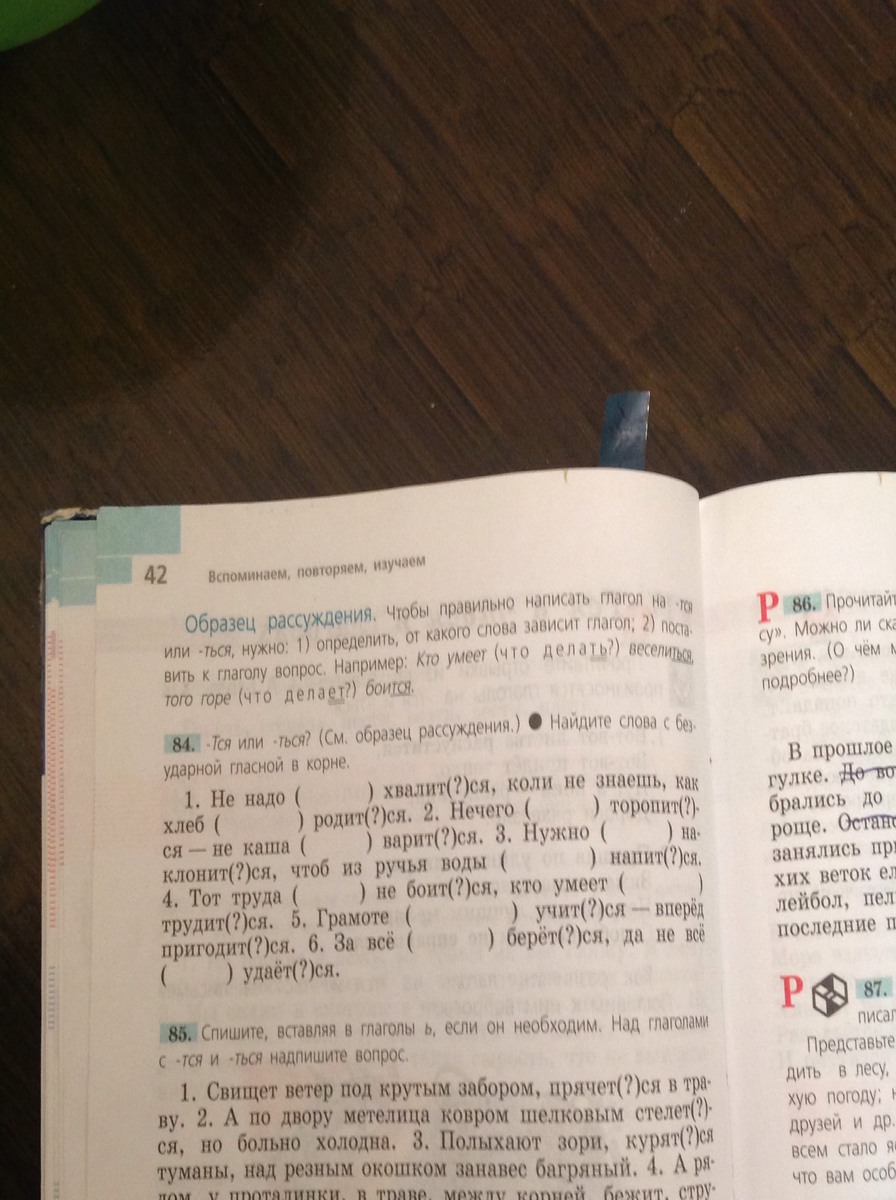 42 Вспоминаем, повторяем, изучаем
Образец рассуждения. Чтобы правильно написать глагол на -тся
или -ться, нужно: 1) определить, от какого слова зависит глагол; 2) поста-
вить к глаголу вопрос. Например: Кто умеет (что делать?) веселиться,
того горе (что делает?) боится.
84. -Тся или -ться? (См. образец рассуждения.) ● Найдите слова с без-
ударной гласной в корне.
1. Не надо ( ) хвалит(?)ся, коли не знаешь, как
хлеб ( ) родит(?)ся. 2. Нечего ( ) торопит(?)-
ся — не каша ( ) варит(?)ся. 3. Нужно ( ) на-
клонит(?)ся, чтоб из ручья воды ( ) напит(?)ся.
4. Тот труда ( ) не боит(?)ся, кто умеет ( )
трудит(?)ся. 5. Грамоте ( ) учит(?)ся — вперёд
пригодит(?)ся. 6. За всё ( ) берёт(?)ся, да не всё
( ) удаёт(?)ся.
85. Спишите, вставляя в глаголы ь, если он необходим. Над глаголами
с -тся и -ться надпишите вопрос.
1. Свищет ветер под крутым забором, прячет(?)ся в тра-
ву. 2. А по двору метелица ковром шелковым стелет(?)-
ся, но больно холодна. 3. Полыхают зори, курят(?)ся
туманы, над резным окошком занавес багряный. 4. А ря-
дом, у проталинки, в траве, между корней, бежит, стру-
Р 86. Прочитайт
су». Можно ли ска
зрения. (О чём м
подробнее?)
В прошлое
гулке. До во
брались до
роще. Остано
занялись при
хих веток ел
лейбол, пел
последние п
Р 87.
писал
Представьте
дить в лесу,
хую погоду; н
друзей и др.
всем стало я
что вам особ